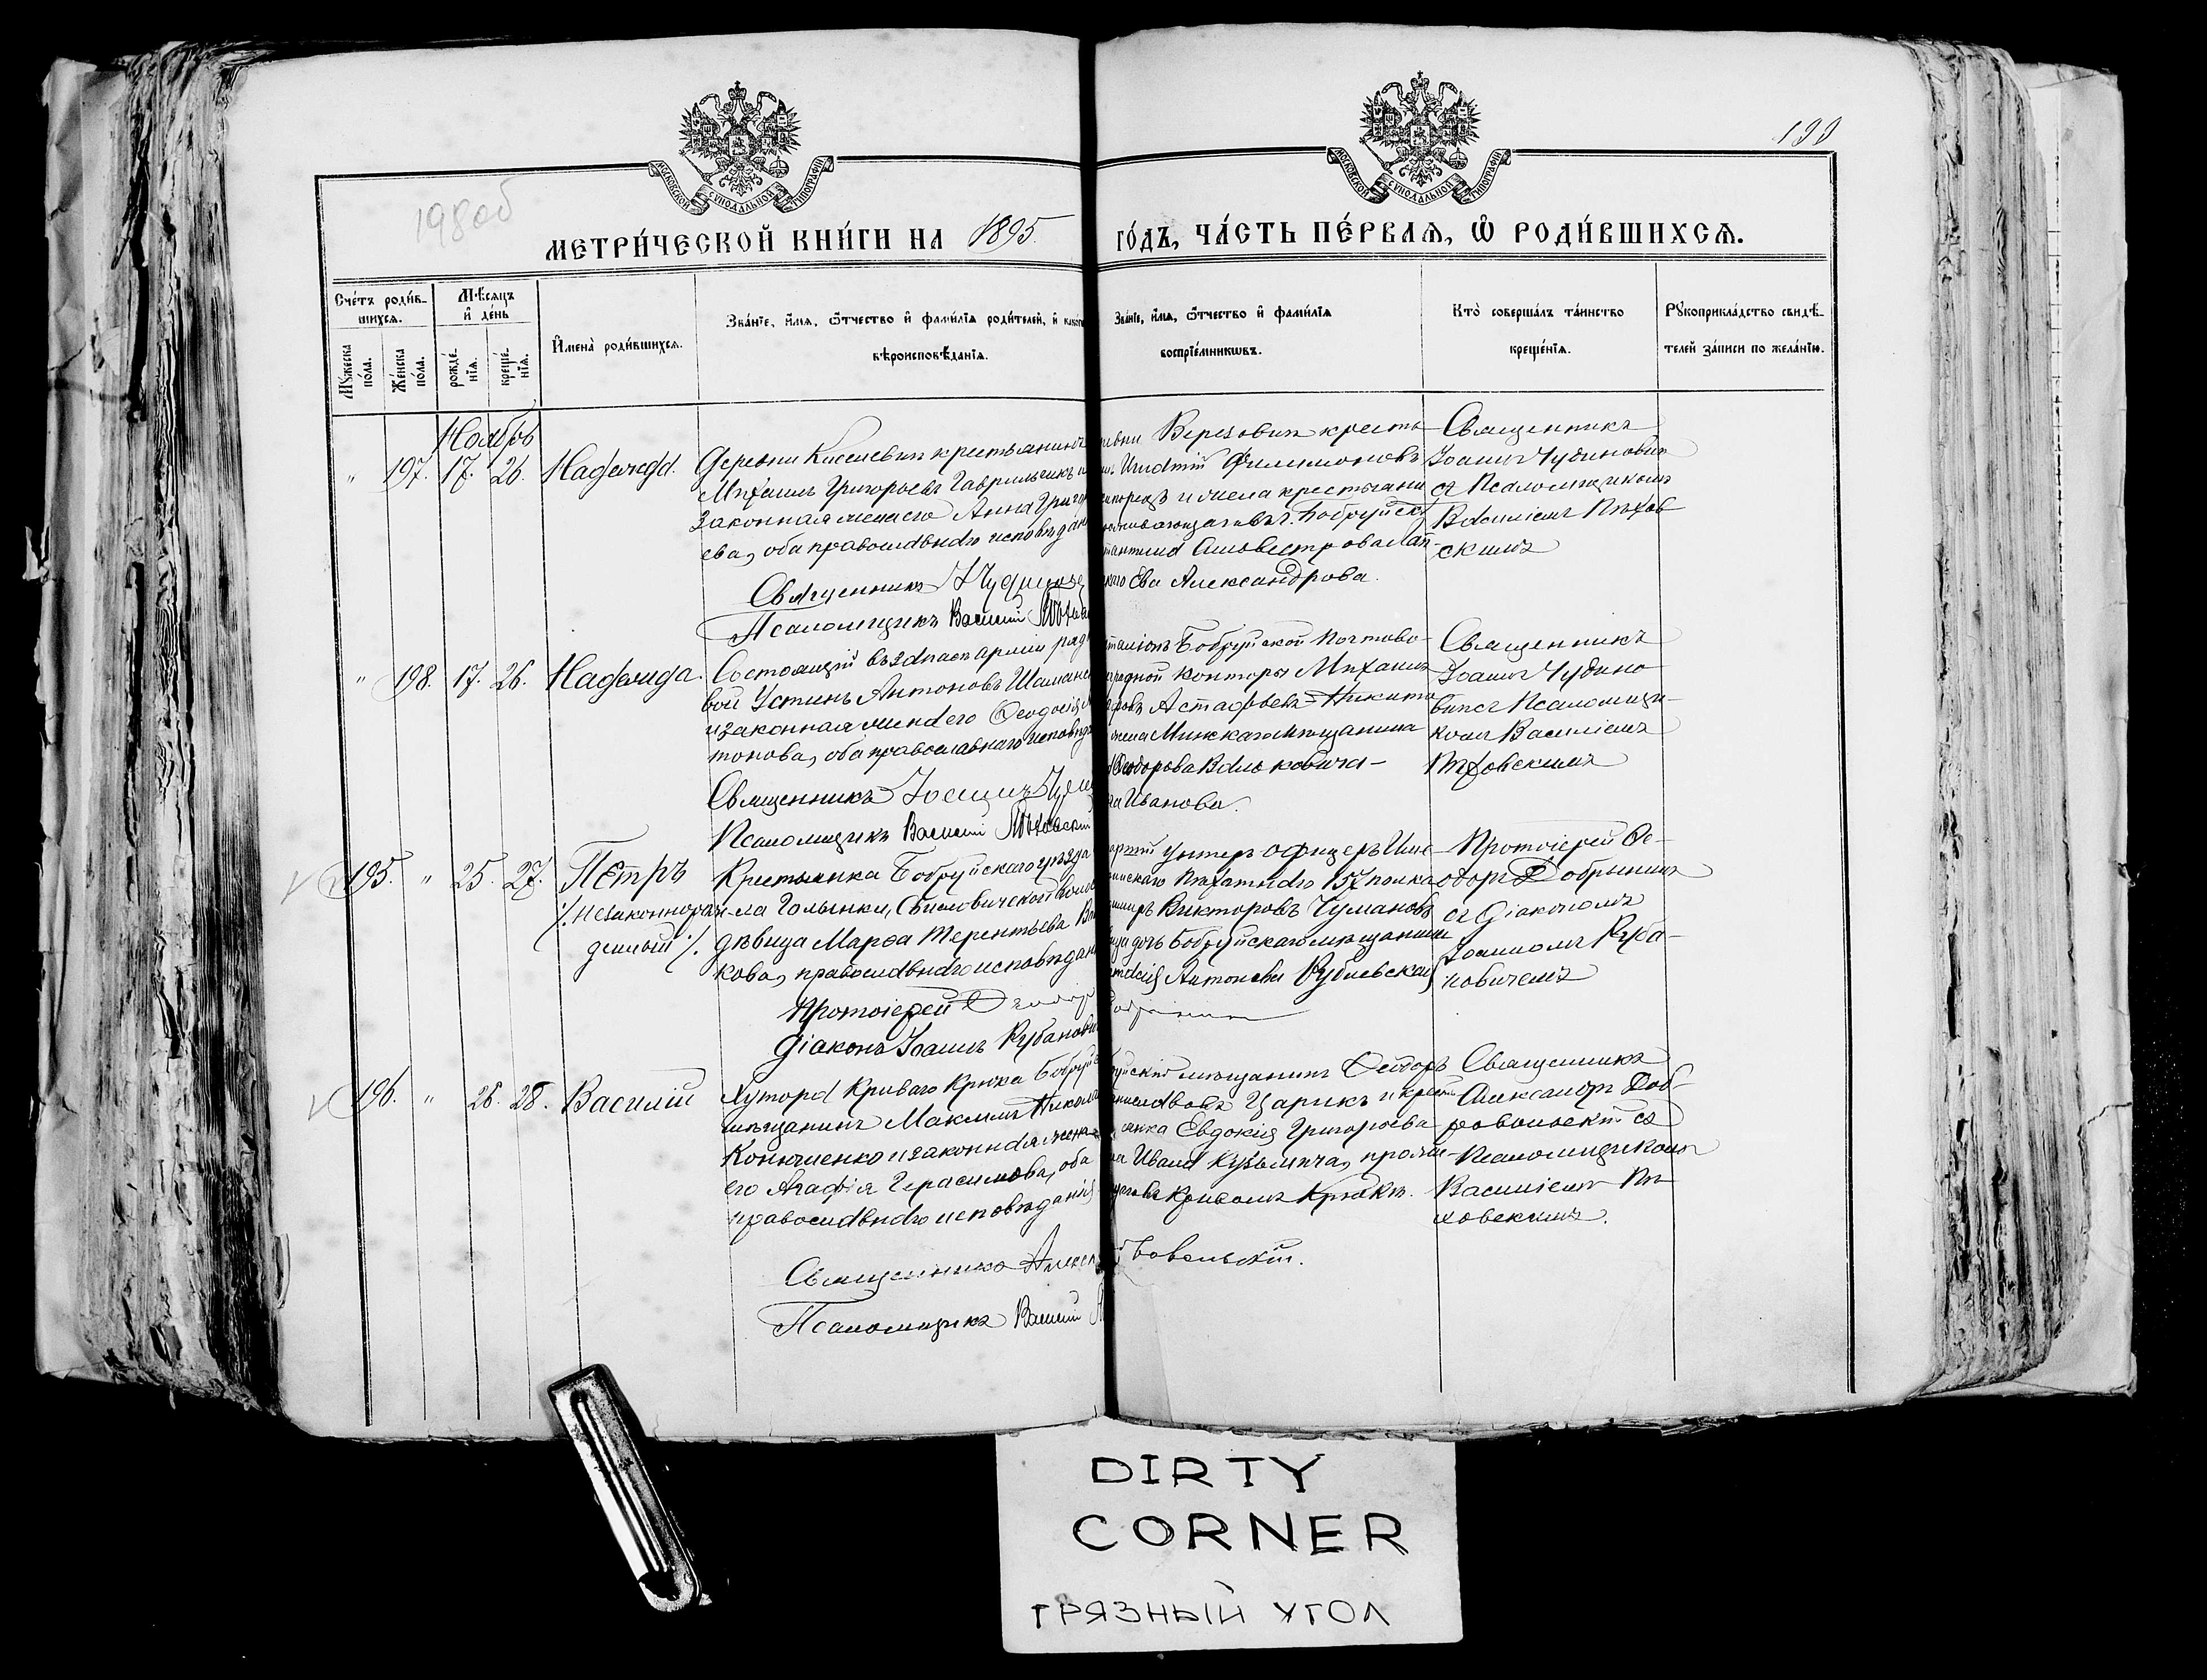 199
198об
МОСКОВСКОЙ СѴНОДАЛЬНОЙ ТИПОГРАФІИ
МОСКОВСКОЙ СѴНОДАЛЬНОЙ ТИПОГРАФІИ
МЕТРИ́ЧЕСКОЙ КНИ́ГИ НА 1895 ГО́ДЪ, ЧА́СТЬ ПЕ́РВАѦ, Ѡ РОДИ́ВШИХСѦ.
Сче́тъ роди́в-
шихсѧ.
Мꙋжеска
по́ла.
Же́нска
по́ла.
Мѣ́сѧцъ
и҆ де́нь
рожде́-
нїѧ.
креще́-
нїѧ.
И҆мена̀ роди́вшихсѧ.
Зва́нїе, и҆́мѧ, ѻ҆́тчество и҆ фами́лїѧ роди́телей, и҆ како́гѡ
вѣроисповѣ́данїѧ.
Зва́нїе, и҆́мѧ, ѻ҆́тчество и҆ фами́лїѧ
воспрїе́мникѡвъ.
Кто̀ соверша́лъ та́инство
креще́нїѧ.
Рꙋкоприкла́дство свидѣ́-
телей за́писи по жела́нїю.
Ноябрь
" 197. 17. 26. Надежда.
Деревни Киселевич крестьянинъ
Михаилъ Григорьевъ Гаврильчикъ и
законная жена его Анна Григор
ева, оба православнаго исповѣдан
Священникъ І Чудинов
Псаломщикъ Василій Пѣхов
Березовик кресть
Игнатій Филимоновъ
и жена крестьяни
г. Бобруйскѣ
Сильвестрова
Ева Александрова.
Священникъ
Іоаннъ Чудинович
съ Псаломщикомъ
Василіемъ Пѣхов
скимъ
" 198. 17. 26. Надежда.
Состоящій въ запасѣ арміи рядо
вой Устинъ Антоновъ Шаманс
и законная жена его Ѳеодосія
тонова, оба православнаго исповѣд
Священникъ Іоаннъ Чуди
Псаломщикъ Василій Пѣховскій
Бобруйской Почтово-
конторы Михаилъ
Астафьевъ Никита
жена Минскаго мѣщанина
Ѳеодорова Вальковича-
Иванова.
Священникъ
Іоаннъ Чудино
вичъ съ Псаломщи-
комъ Василіемъ
Пѣховскимъ
195. " 25. 27. Петръ
/. незаконнорож
денный /.
Крестьянка Бобруйскаго уѣзда
ла Голынки, Свисловичской воло
дѣвица Марѳа Терентьева
кова, православнаго исповѣдан
Протоіерей Ѳеодор Добрынин
Діаконъ Іоаннъ Рубанови
унтеръ офицеръ Име
Пѣхатнаго 157 полка
Викторовъ Чумаковъ
дочь Бобруйскаго мѣщанина
Антонова Рублевская
Протоіерей Ѳе-
одоръ Добрынинъ
съ Діакономъ
Іоанномъ Руба-
новичемъ
196. " 26. 28. Василій
Хутора Криваго Крюка Бобруйс
мѣщанинъ Максимъ Никола
Конюшенко и законная жена
его Агафія Герасимова, оба
православнаго исповѣданія
Священникъ Алекса Бовольскій.
Псаломщикъ Василій
мѣщанинъ Ѳеодоръ
Царикъ и крест
янка Евдокія Григорьева
Ивана Кузьмича, прожи-
Кривомъ Крюкѣ.
Священникъ
Александръ Доб-
ровольскій съ
Псаломщикомъ
Василіемъ Пѣ
ховскимъ.
DIRTY
CORNER
ГРЯЗНЫЙ УГОЛ